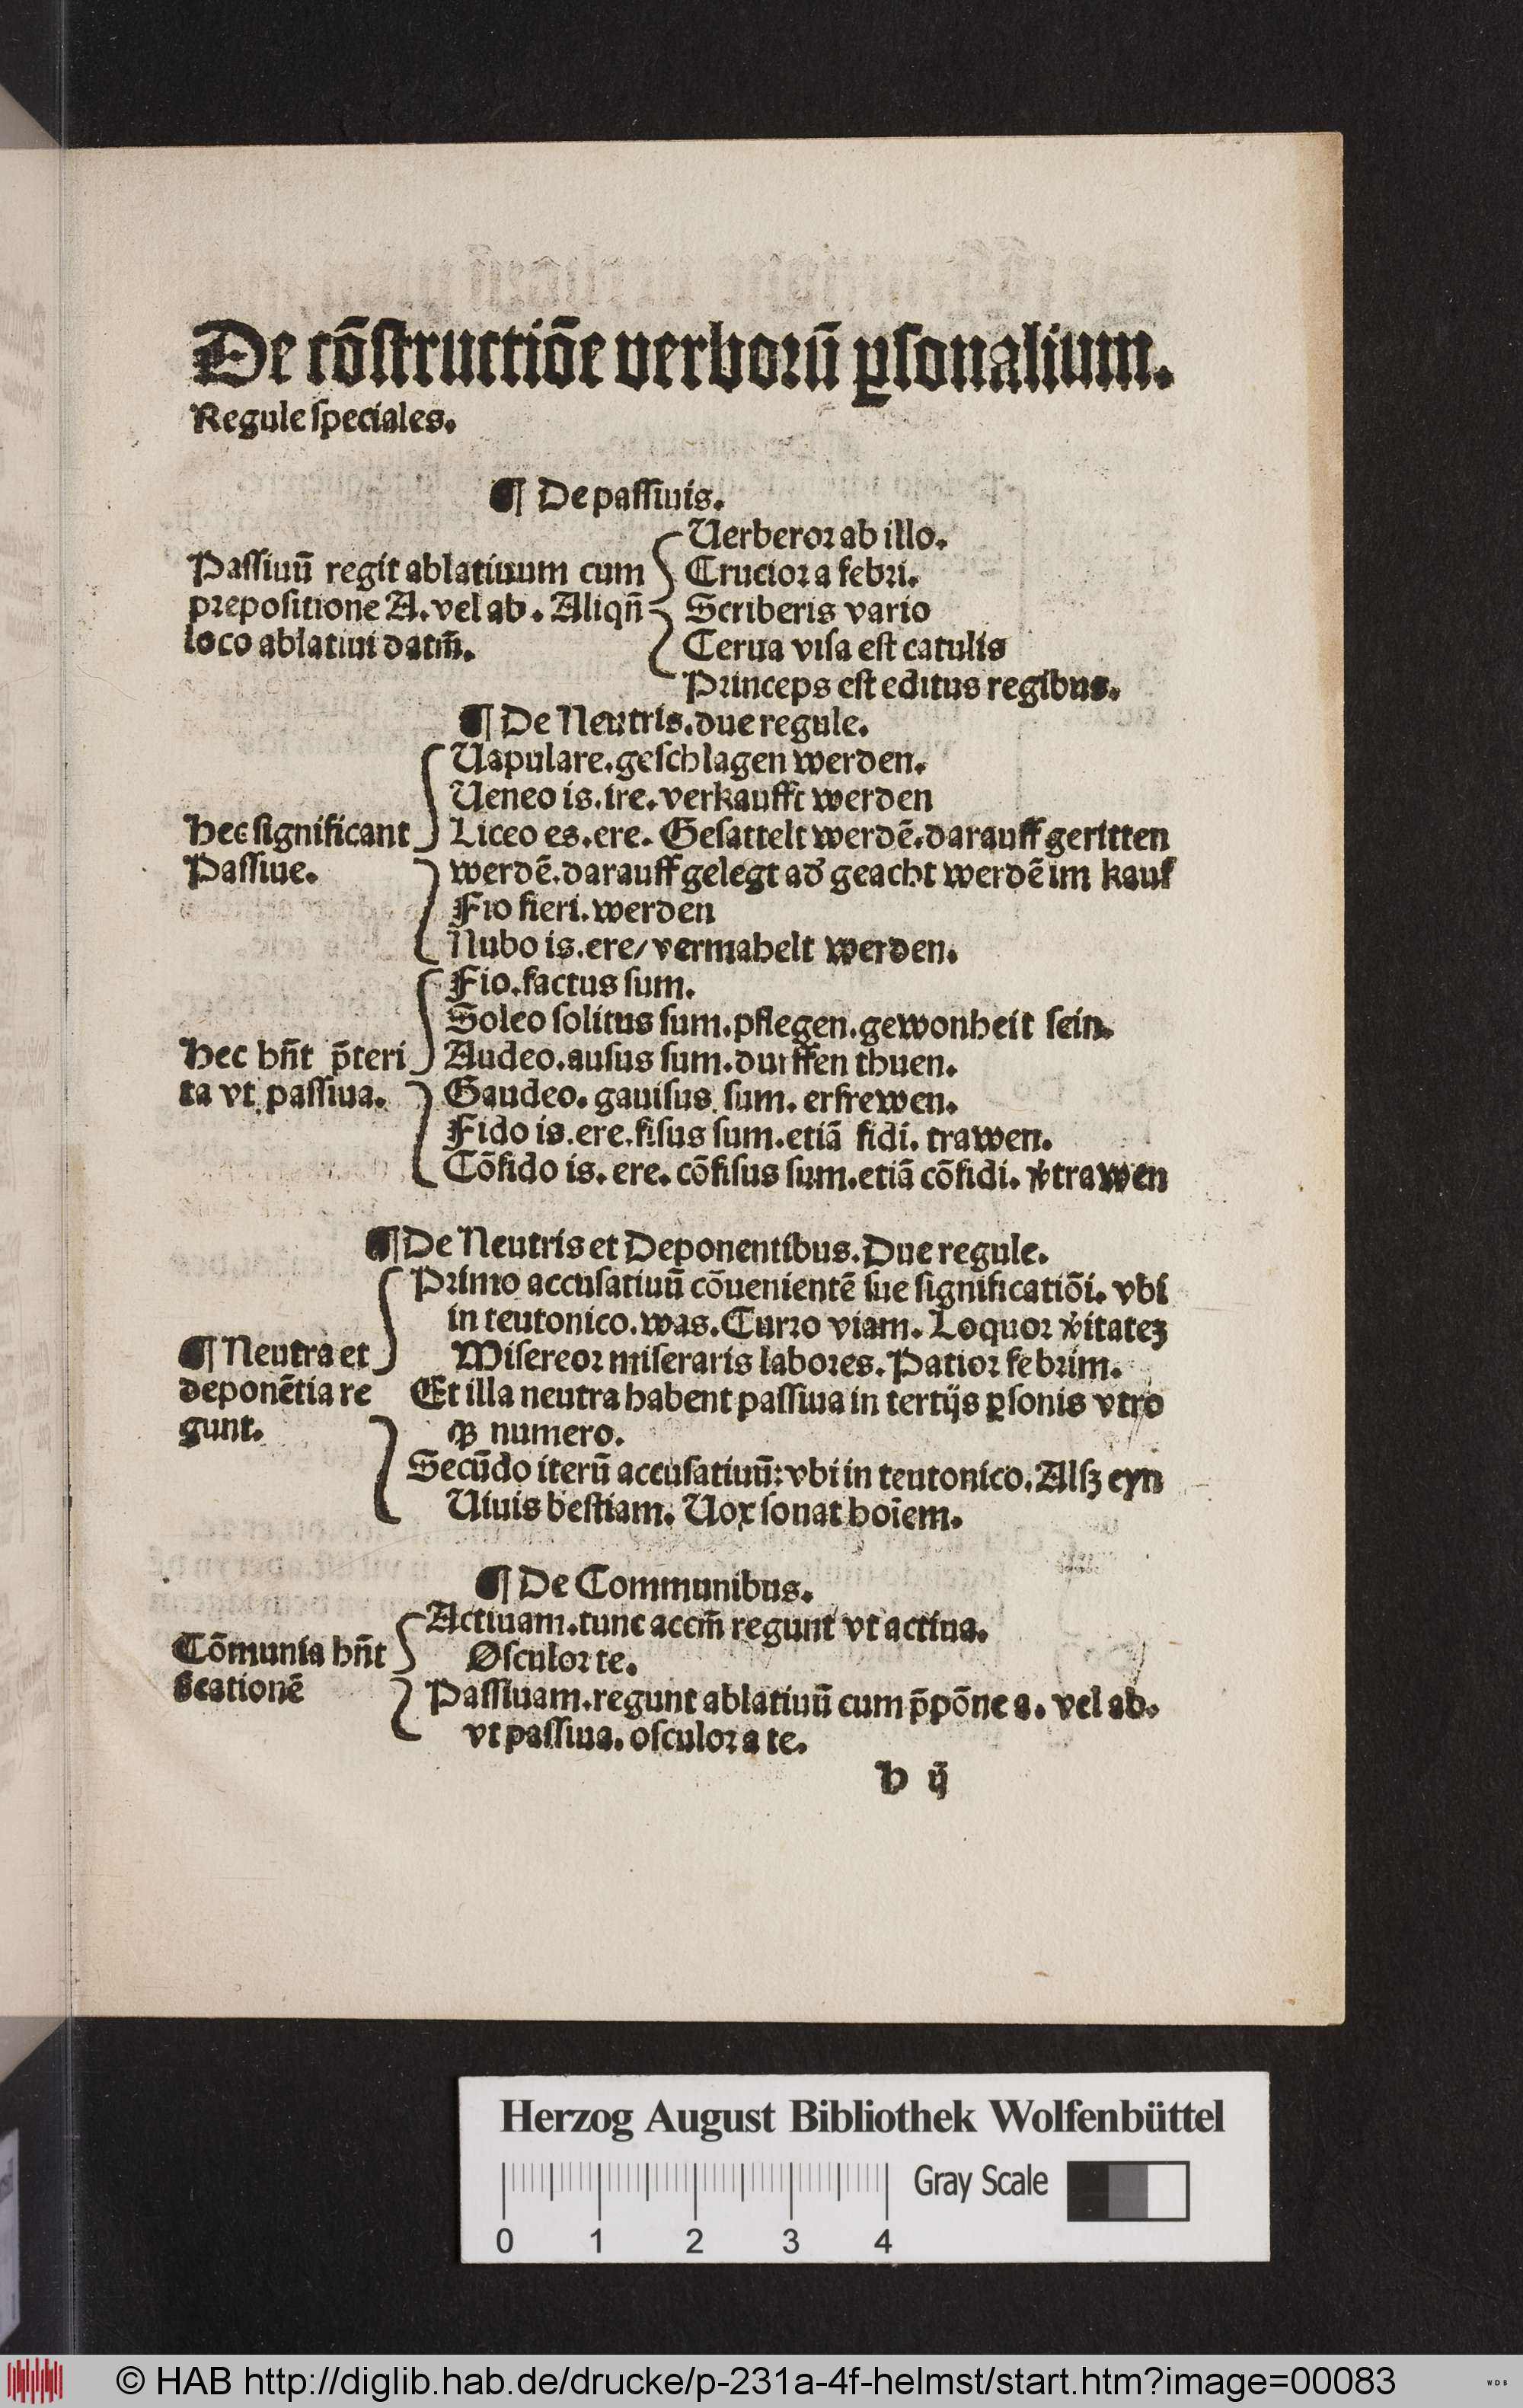 De cōſtructiōe verborū ꝑſonalium.
Regule ſpeciales.
¶ De paſſiuis.
Uerberor ab illo.
Paſſiuū regit ablatiuum cum
Crucior a febri.
prepoſitione A. vel ab. Aliqn̄
Scriberis vario
loco ablatiui datm̄.
Cerua viſa eſt catulis
Princeps eſt editus regibus.
¶ De Neutris. due regule.
Uapulare. geſchlagen werden.
Ueneo is. ire. verkaufft werden
Hec ſignificant
Liceo es. ere. Geſattelt werdē. darauff geritten
Paſſiue.
werdē. darauff gelegt ad' geacht werdē im kauf
Fio fieri. werden
Nubo is. ere/ vermahelt werden.
Fio. factus ſum.
Soleo ſolitus ſum. pflegen. gewonheit ſein.
Hec hn̄t p̄teri
Audeo. auſus ſum. durffen thuen.
ta vt paſſiua.
Gaudeo. gauiſus ſum. erfrewen.
Fido is. ere. fiſus ſum. etiā fidi. trawen.
Cōfido is. ere. cōfiſus ſum. etiā cōfidi. v̾trawen
¶ De Neutris et Deponentibus. Due regule.
Primo accuſatiuū cōuenientē ſue ſignificatiōi. vbi
in teutonico. was. Curro viam. Loquor v̾itateꝫ
¶ Neutra et
Miſereor miſeraris labores. Patior febrim.
deponētia re
Et illa neutra habent paſſiua in tertijs ꝑſonis vtro
gunt.
qꝫ numero.
Secūdo iterū accuſatiuū: vbi in teutonico. Alſꝫ eyn
Uiuis beſtiam. Uox ſonat hoīem.
¶ De Communibus.
Actiuam. tunc accm̄ regunt vt actiua.
Cōmunia hn̄t
Oſculor te.
ſcationē
Paſſiuam. regunt ablatiuū cum p̄pōne a. vel ab.
vt paſſiua. oſculor a te.
b ij
Herzog August Bibliothek Wolfenbüttel
Gray Scale
0 1 2 3 4
© HAB http://diglib.hab.de/drucke/p-231a-4f-helmst/start.htm?image=00083
WDB